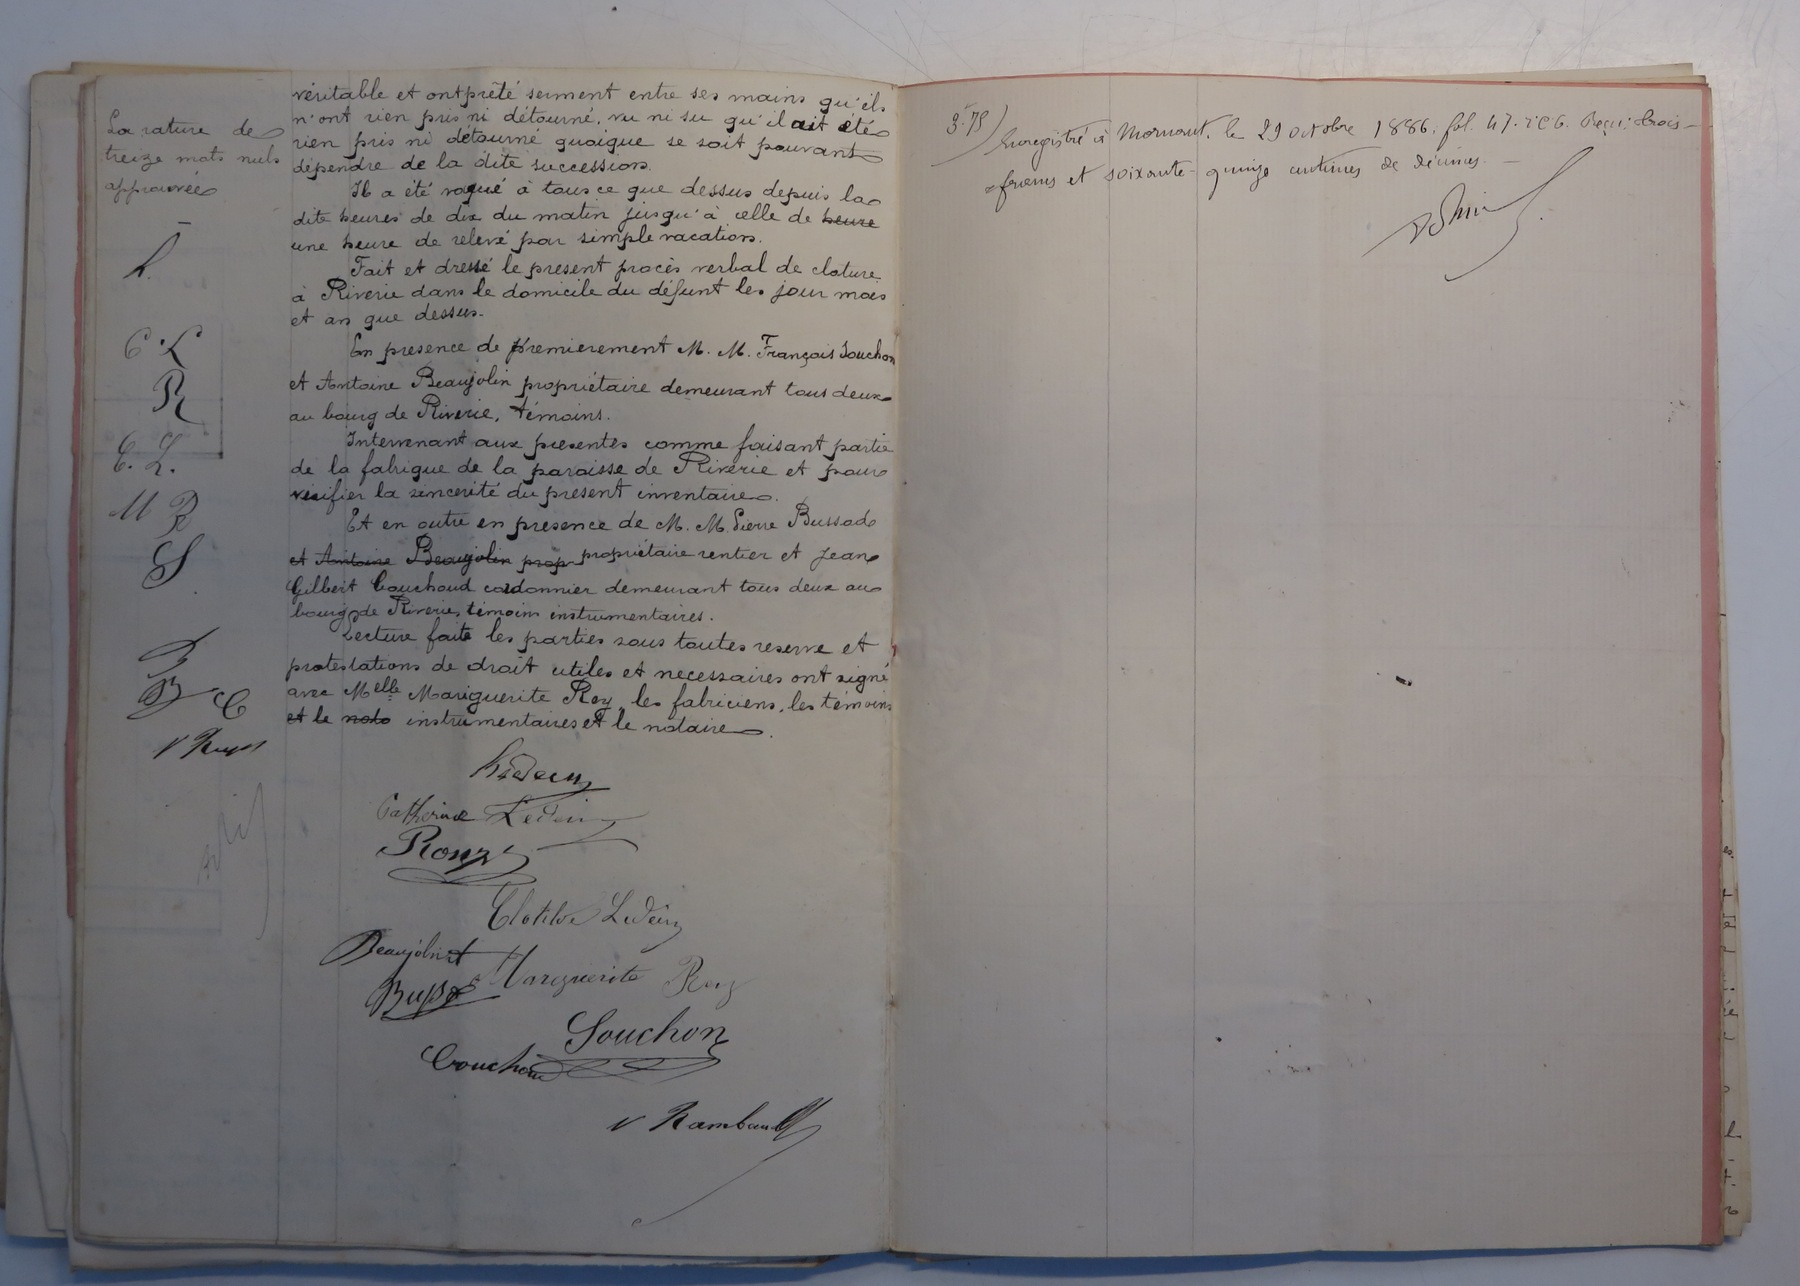 La rature de
treize mots nuls
approuvée
L.
C. L
R
C. L.
M R
S
B
B C
V Ramb
véritable et ont prêté serment entre ses mains qu'ils
n'ont rien pris ni détourné, vu ni su qu'il ait été
rien pris ni détourné quoique se soit pouvant
dépendre de la dite succession.
Il a été vaqué à tous ce que dessus depuis la
dite heures de dix du matin jusqu'à celle de heure
une heure de relevé par simple vacation.
Fait et dressé le present procès verbal de cloture
à Riverie dans le domicile du défunt les jour mois
et an que dessus.
En presence de premierement M. M. François Souchon
et Antoine Beaujolin propriétaire demeurant tous deux
au bourg de Riverie, témoins.
Intervenant aux presentes comme faisant partie
de la fabrique de la paroisse de Riverie et pour
vérifier la sincerité du present inventaire.
Et en outre en presence de M. M. Pierre Bussod
et Antoine Beaujolin prop propriétaire rentier et Jean
Gilbert Couchoud cordonnier demeurant tous deux au
bourg de Riverie, témoins instrumentaires.
Lecture faite les parties sous toutes reserve et
protestations de droit utiles et necessaires ont signé
avec Melle Mariguerite Rey, les fabriciens, les témoins
et le nota instrumentaires et le notaire.
Ledein
Catherine Ledein
Rony
Clotilde Ledein
Beaujolin
Marguerite Rey
Busso
Souchon
Couchoud
V Rambault
3.75
Enregistré à Mornant, le 29 octobre 1886. fol. 47. Vo C 6. Reçu: trois
francs et soixante-quinze centimes de décimes.